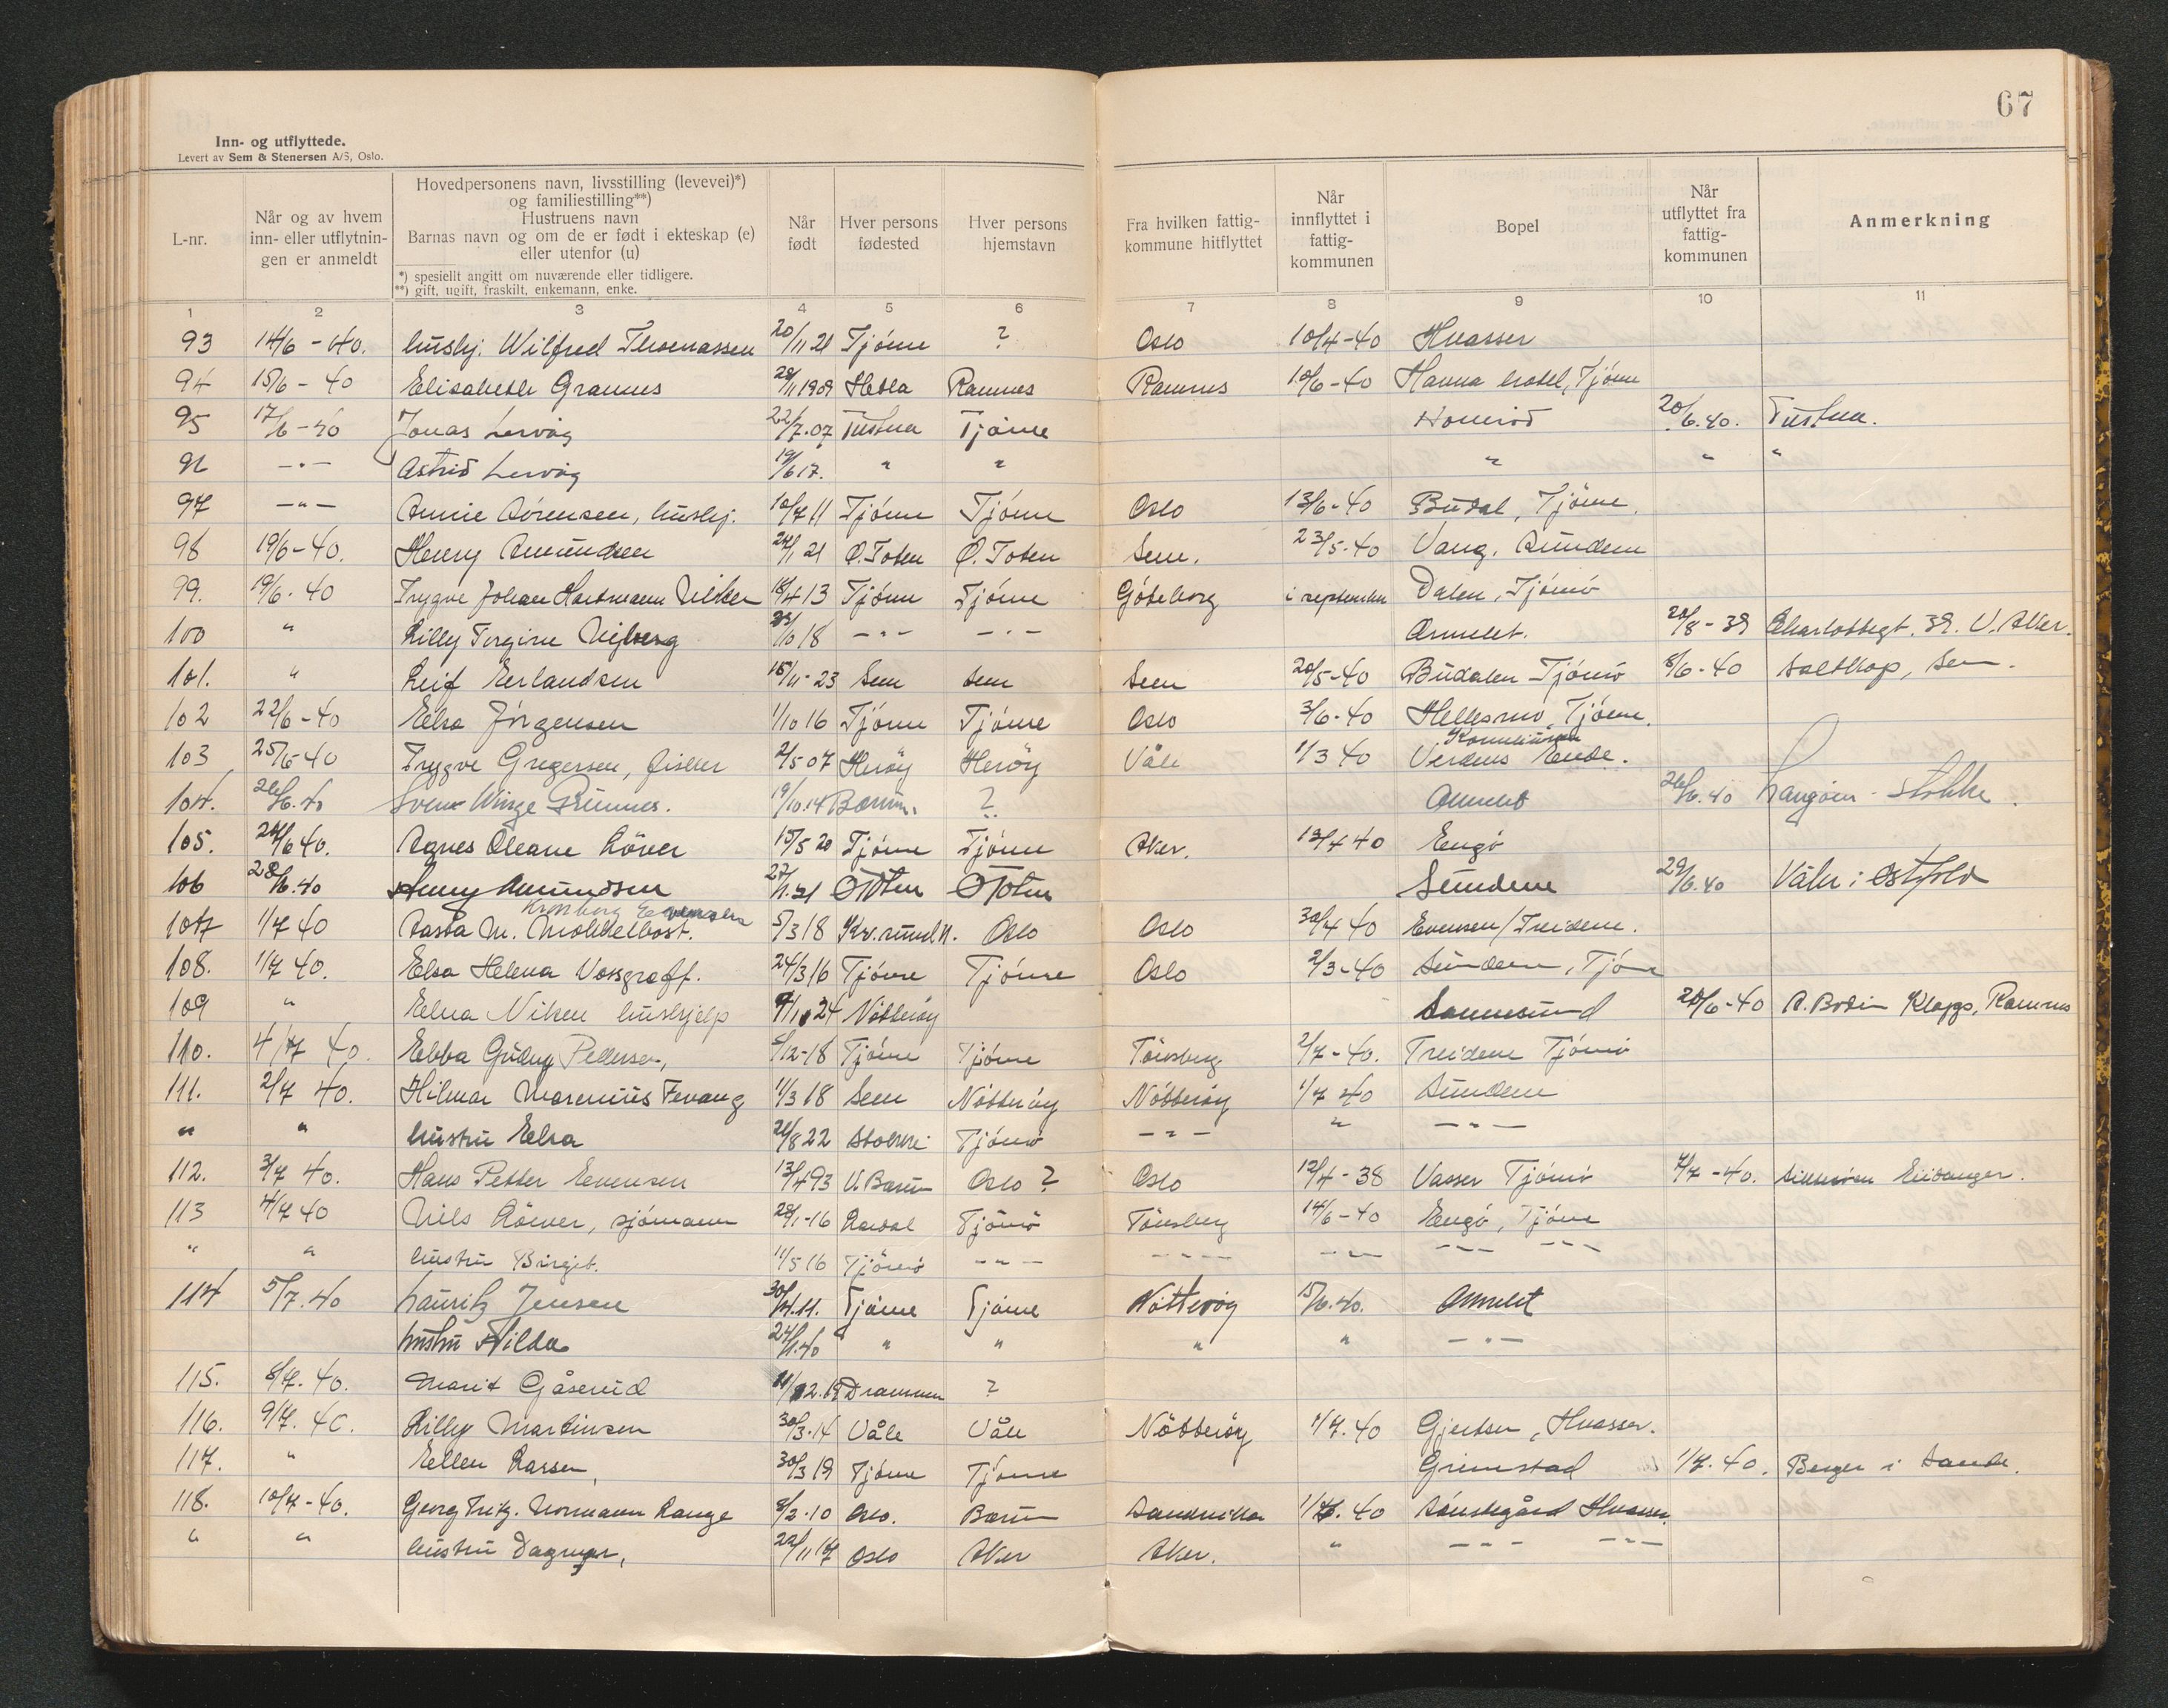 67
Inn- og utflyttede.
Levert av Sem & Stenersen A/S, Oslo.
L-nr.
Når og av hvem inn- eller utflytnin-gen er anmeldt
Hovedpersonens navn, livsstilling (levevei)*) og familiestilling**) Hustruens navn Barnas navn og om de er født i ekteskap (e) eller utenfor (u)
*) spesiellt angitt om nuværende eller tidligere.
**) gift, ugift, fraskilt, enkemann, enke.
Når født
Hver persons fødested
Hver persons hjemstavn
Fra hvilken fattig-kommune hitflyttet
Når innflyttet i fattig-kommunen
Bopel
Når utflyttet fra fattig-kommunen
Anmerkning
1 2 3 4 5 6 7 8 9 10 11
93 14/6 - 40. hushj. Wilfred Thomassen 20/11 21 Tjöme ? Oslo 10/4-40 Hvasser
94 15/6 - 40 Elisabeth Grannes 1909 Ramnes Ramnes 10/6-40 Hanna hotel, Tjöme
95 17/6-40 Jonas Lervåg 22/7.07 Tustna Tjöme 20/6.40. Tustna.
96 -"- Astrid Lervåg 19/6 17. " " " " "
97 -"- Annie Sörensen, hushj. 10/7 11 Tjöme Tjöme Oslo 13/6-40 Budal, Tjöme.
98 19/6-40. Henry Amundsen 24/1 21 Ö. Toten Ö. Toten Sem. 23/5-40 Vang, Sundene
99. 19/6-40 Trygve Johan Hartmann Nilsen 18/4 13 Tjöme Tjöme Göteborg i september Dalen, Tjömö
100 " Lilly Torgine 10 18 -"- -"- Ormelet. 20/8-39 39. V. Aker.
101. " Leif Erlandsen 15/11-23 Sem Sem Sem 20/5-40 Budalen Tjömö 8/6-40 Saltkop, Sem.
102 22/6-40 Elsa Jörgensen 1/10 16 Tjöme Tjöme Oslo 3/6-40 Tjöme.
103 25/6-40 Trygve Gregersen, fisker 2/5 07 Heröy Heröy Våle 1/3 40 Verdens Ende.
104. 26/6.40 Svenn Winge 19/10.14 Bærum. ? Ormelet 26/6.40 Stokke.
105. 24/6 40. Agnes Oleane Röver 15/5 20 Tjöme Tjöme Aker. 13/4 40 Engö
106 28/6.40 Henny Amundsen 27/1.21 Ö Toten Ö Toten Sundene 29/6.40 Våler i Östfold
107 1/7 40 Aasta M. Mokkelbost. 5/3 18 Kr.sund N. Oslo Oslo 30/4 40 Evensen/Treidene.
108. 1/7 40. Elsa Helena Vossgraff. 24/3 16 Tjöme Tjöme Oslo 2/3-40 Sundene, Tjöm
109 " Elna Nilsen hushjelp 24 Nötteröy Sonnesund 20/6-40 A. Bodin Klopp, Ramnes
110. 4/7 40. Ebba Gudny Pettersen, 5/12-18 Tjöme Tjöme Tönsberg 2/7-40. Treidene Tjömö
111. 2/7 40. Hilmar Marenius Fevang 11/3 18 Sem Nötteröy Nötteröy 1/7 40 Sundene
" " hustru Elsa 21/8 22 Stokke Tjömö -"- " -"-
112. 3/7 40. Hans Petter Evensen 13/4 93 V. Bærum Oslo ? Oslo 12/4-38 Vasser Tjömö 7/7-40. Eidanger.
113 4/7 40 Nils Röwer, sjömann 28/1-16 Tjömö Tönsberg 14/6-40 Engö, Tjöme
" " hustru Birgit. 11/5 16 Tjömö -"- -"- -"- -"- -"-
114 5/7.40 Lauritz Jensen 30/4.11. Tjöme Tjöme Nötteröy 15/6.40. Ormelet
hustru Hilda 24/1.40 " " " " -"-
115. 8/7.40. Marit Gåserud 11/12.18 Drammen ?
116. 9/7.40. Lilly Martinsen 30/3.14 Våle Våle Nötteröy 1/7.40 Gjertsen, Hvasser.
117. " Ellen Larsen, 30/3 19 Tjöme Tjöme Grimestad 1/7.40. Berger i Sande.
118. 10/7-40. Georg Fritz. Normann Lange 8/2.10 Oslo. Bærum Sandvika 1/7.40 Sönstegård Hvasser.
" " hustru Dagmar, 22/11 17 Oslo Aker Aker. " -"- -"-